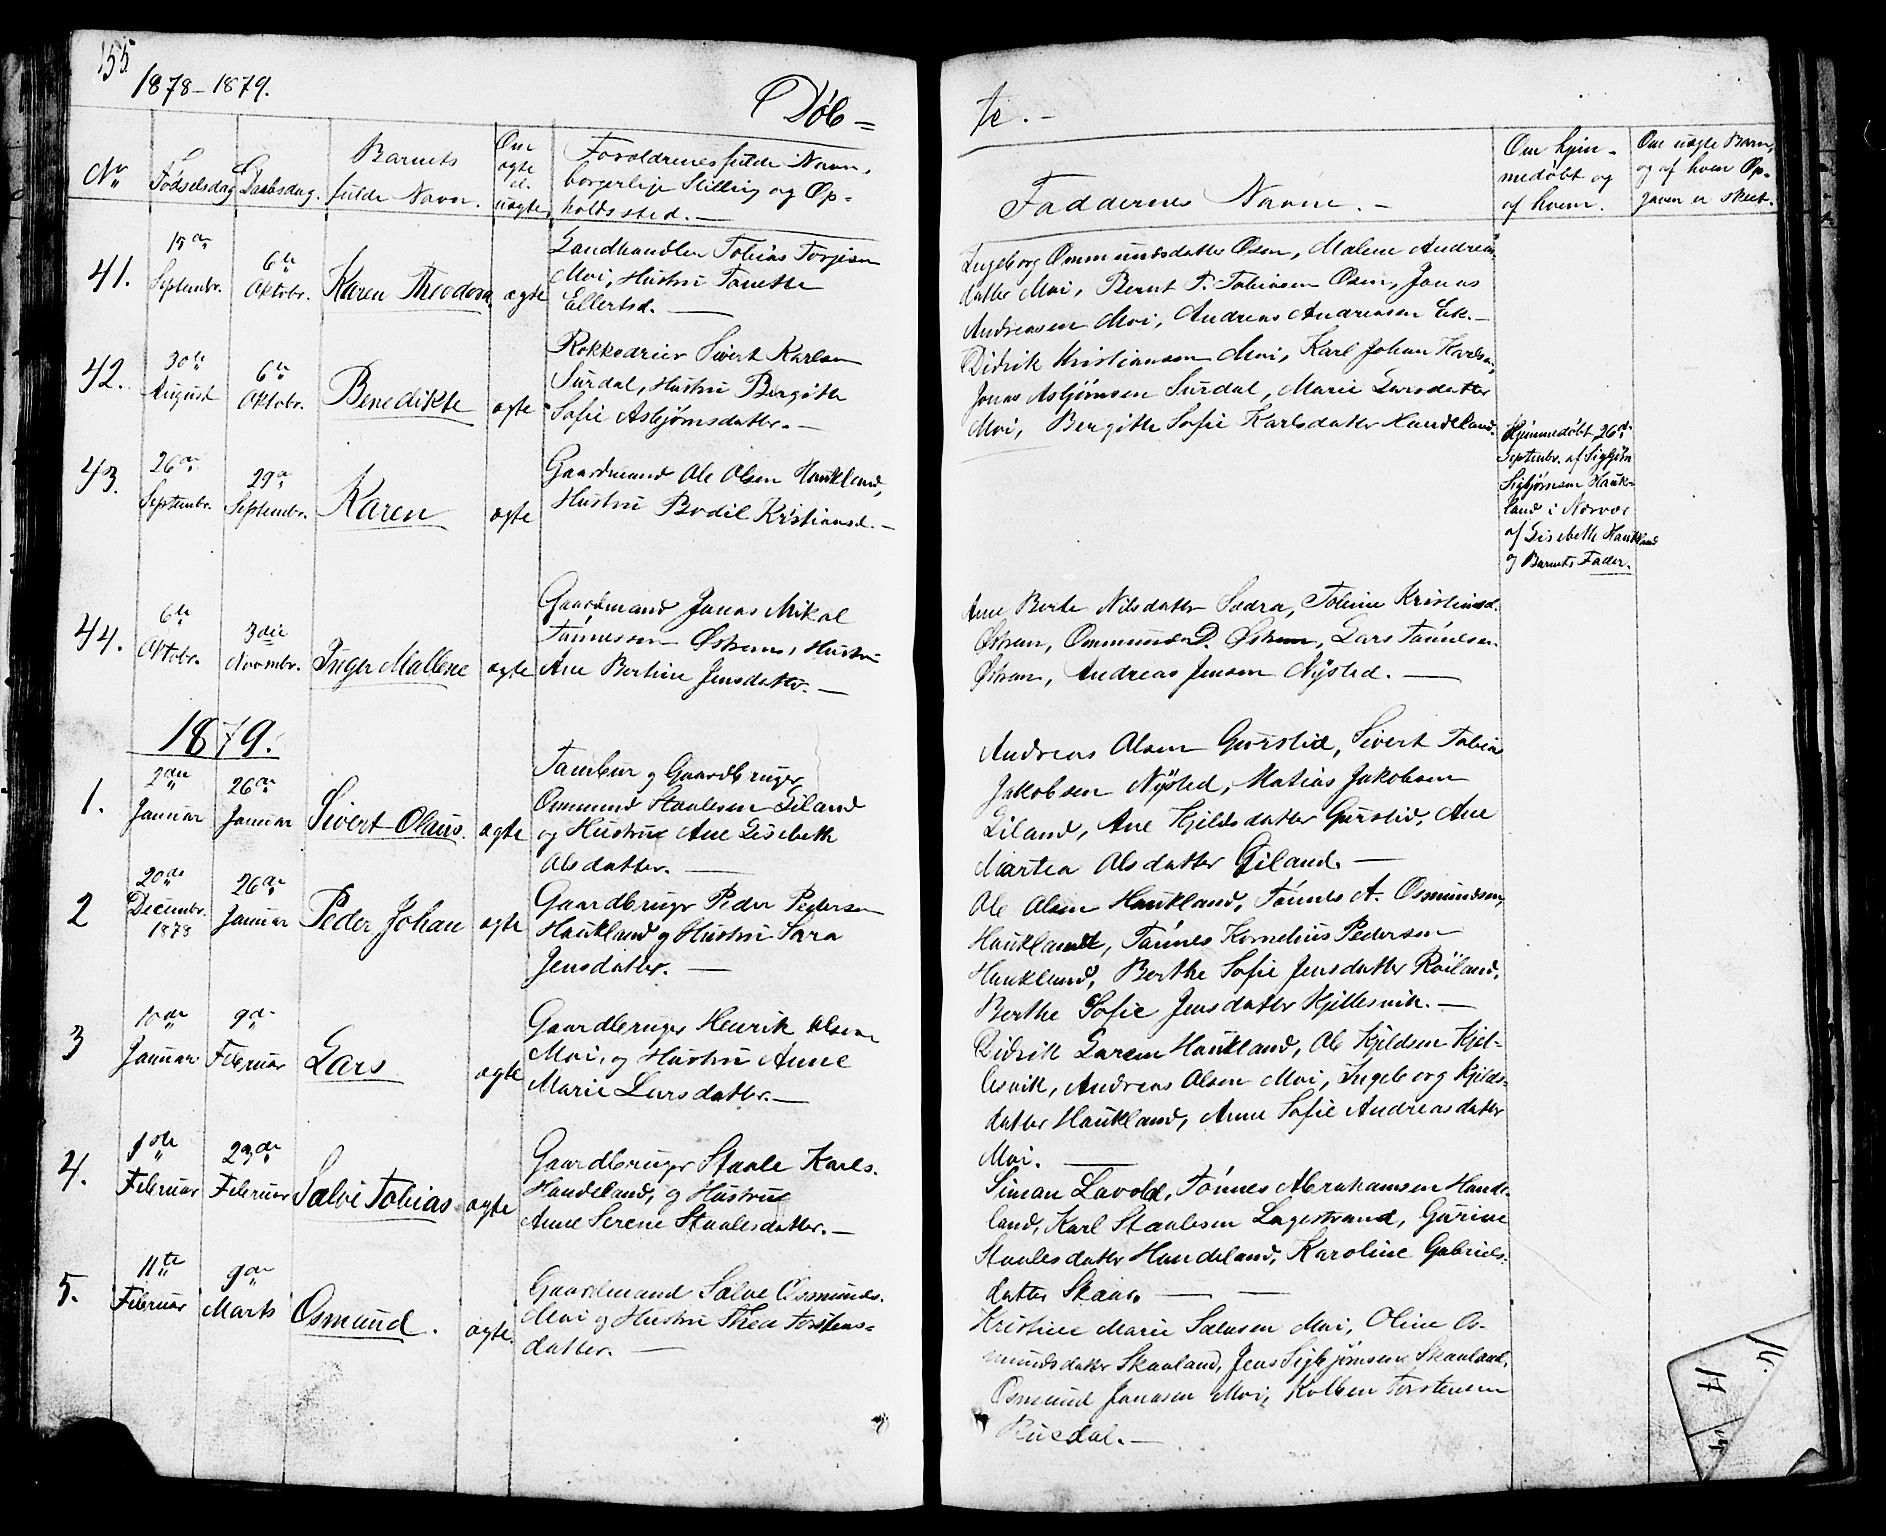 155
1878-1879.
Döb=
te.-
No
Fødselsdag
Daabsdag.
Barnets
fulde Navn.
Om
ægte
el.
uægte
Forældrenes fulde Navn,
borgerlige Stilling og Op-
holdssted.-
Faddernes Navne.-
Om hjem-
medøbt og
af hvem.
Om uægte Barn,
og af hvem Op-
gaven er skeet.
41.
15de
Septembr.
6te
Oktobr.
Karen Theodora
ægte
Landhandler Tobias Torjisen
Moi, Hustru Tonette
Ellertsd.-
Ingeborg Ommundsdatter Osen, Malene Andreas-
datter Moi, Bernt T. Tobiasen Osen, Jonas
Andreasen Moi, Andreas Andreasen Eik.-
42.
30te
August
6te
Oktobr.
Benedikte
ægte
Rokkedreier Sivert Karlsen
Surdal, Hustru Bergitte
Sofie Asbjørnsdatter.-
Didrik Kristiansen Moi, Karl Johan Karlsen,
Jonas Asbjørnsen Surdal, Marie Larsdatter
Moi, Bergitte Sofie Karlsdatter Handeland.
43.
26de
Septembr.
29de
Septembr.
Karen
ægte
Gaardmand Ole Olsen Haukland,
Hustru Bodil Kristiansd.-
Hjemmedøbt 26de
Septembr. af Sigbjørn
Sigbjørnsen Hauk-
land i Nærvær
af Lisebeth Haukland
og Barnets Fader.
44.
6te
Oktobr.
3die
Novembr.
Inger Mallene
ægte
Gaardmand Jonas Mikal
Tønnessen Østrem, Hustru
Ane Bertine Jensdatter.-
Ane Berte Nilsdatter Sædra, Toline Kristiansd.
Østrem, Ommund D. Østrem, Lars Tønnesen
Østrem, Andreas Jensen Nysted.-
1879.
1.
2den
Januar
26de
Januar
Sivert Olaus.
ægte
Tambur og Gaardbruger
Osmund Staalesen Eiland
og Hustru Ane Lisebeth
Olsdatter.-
Andreas Olsen Gurslid, Sivert Tobias
Jakobsen Nysted, Matias Jakobsen
Eiland, Ane Kjeldsdatter Gurslid, Ane
Martea Olsdatter Eiland.-
2
20de
Decembr.
1878
26de
Januar
Peder Johan
ægte
Gaardbruger Peder Pedersen
Haukland og Hustru Sara
Jensdatter.-
Ole Olsen Haukland, Tønnes A. Osmundsen,
Haukland, Tønnes Kornelius Pedersen
Haukland, Berthe Sofie Jensdatter Röiland,
Berthe Sofie Jensdatter Kjellesvik.-
3
10de
Januar
9de
Februar
Lars
ægte
Gaardbruger Henrik Olsen
Moi, og Hustru Anne
Marie Larsdatter.-
Didrik Larsen Haukland, Ole Kjeldsen Kjel-
lesvik, Andreas Olsen Moi, Ingeborg Kjelds-
datter Haukland, Anne Sofie Andreasdatter
Moi.-
4.
1ste
Februar
23de
Februar
Salve Tobias
ægte
Gaardbruger Staale Karls.
Handeland, og Hustru
Anne Serene Staalesdatter.-
Simon Lavold, Tönnes Abrahamsen Hande-
land, Karl Staalesen Lagestrand, Gurine
Staalesdatter Handeland, Karoline Gabriels-
datter Skaar.-
5.
11te
Februar
9de
Marts
Osmund.
ægte.
Gaardmand Salve Osmunds.
Moi og Hustru Thea Torstens-
datter.-
Kristine Marie Salvesen Moi, Oline Os-
mundsdatter Skaaland, Jens Sigbjørnsen Skaaland,
Osmund Jonasen Moi, Kolben Torstensen
Rusdal.-